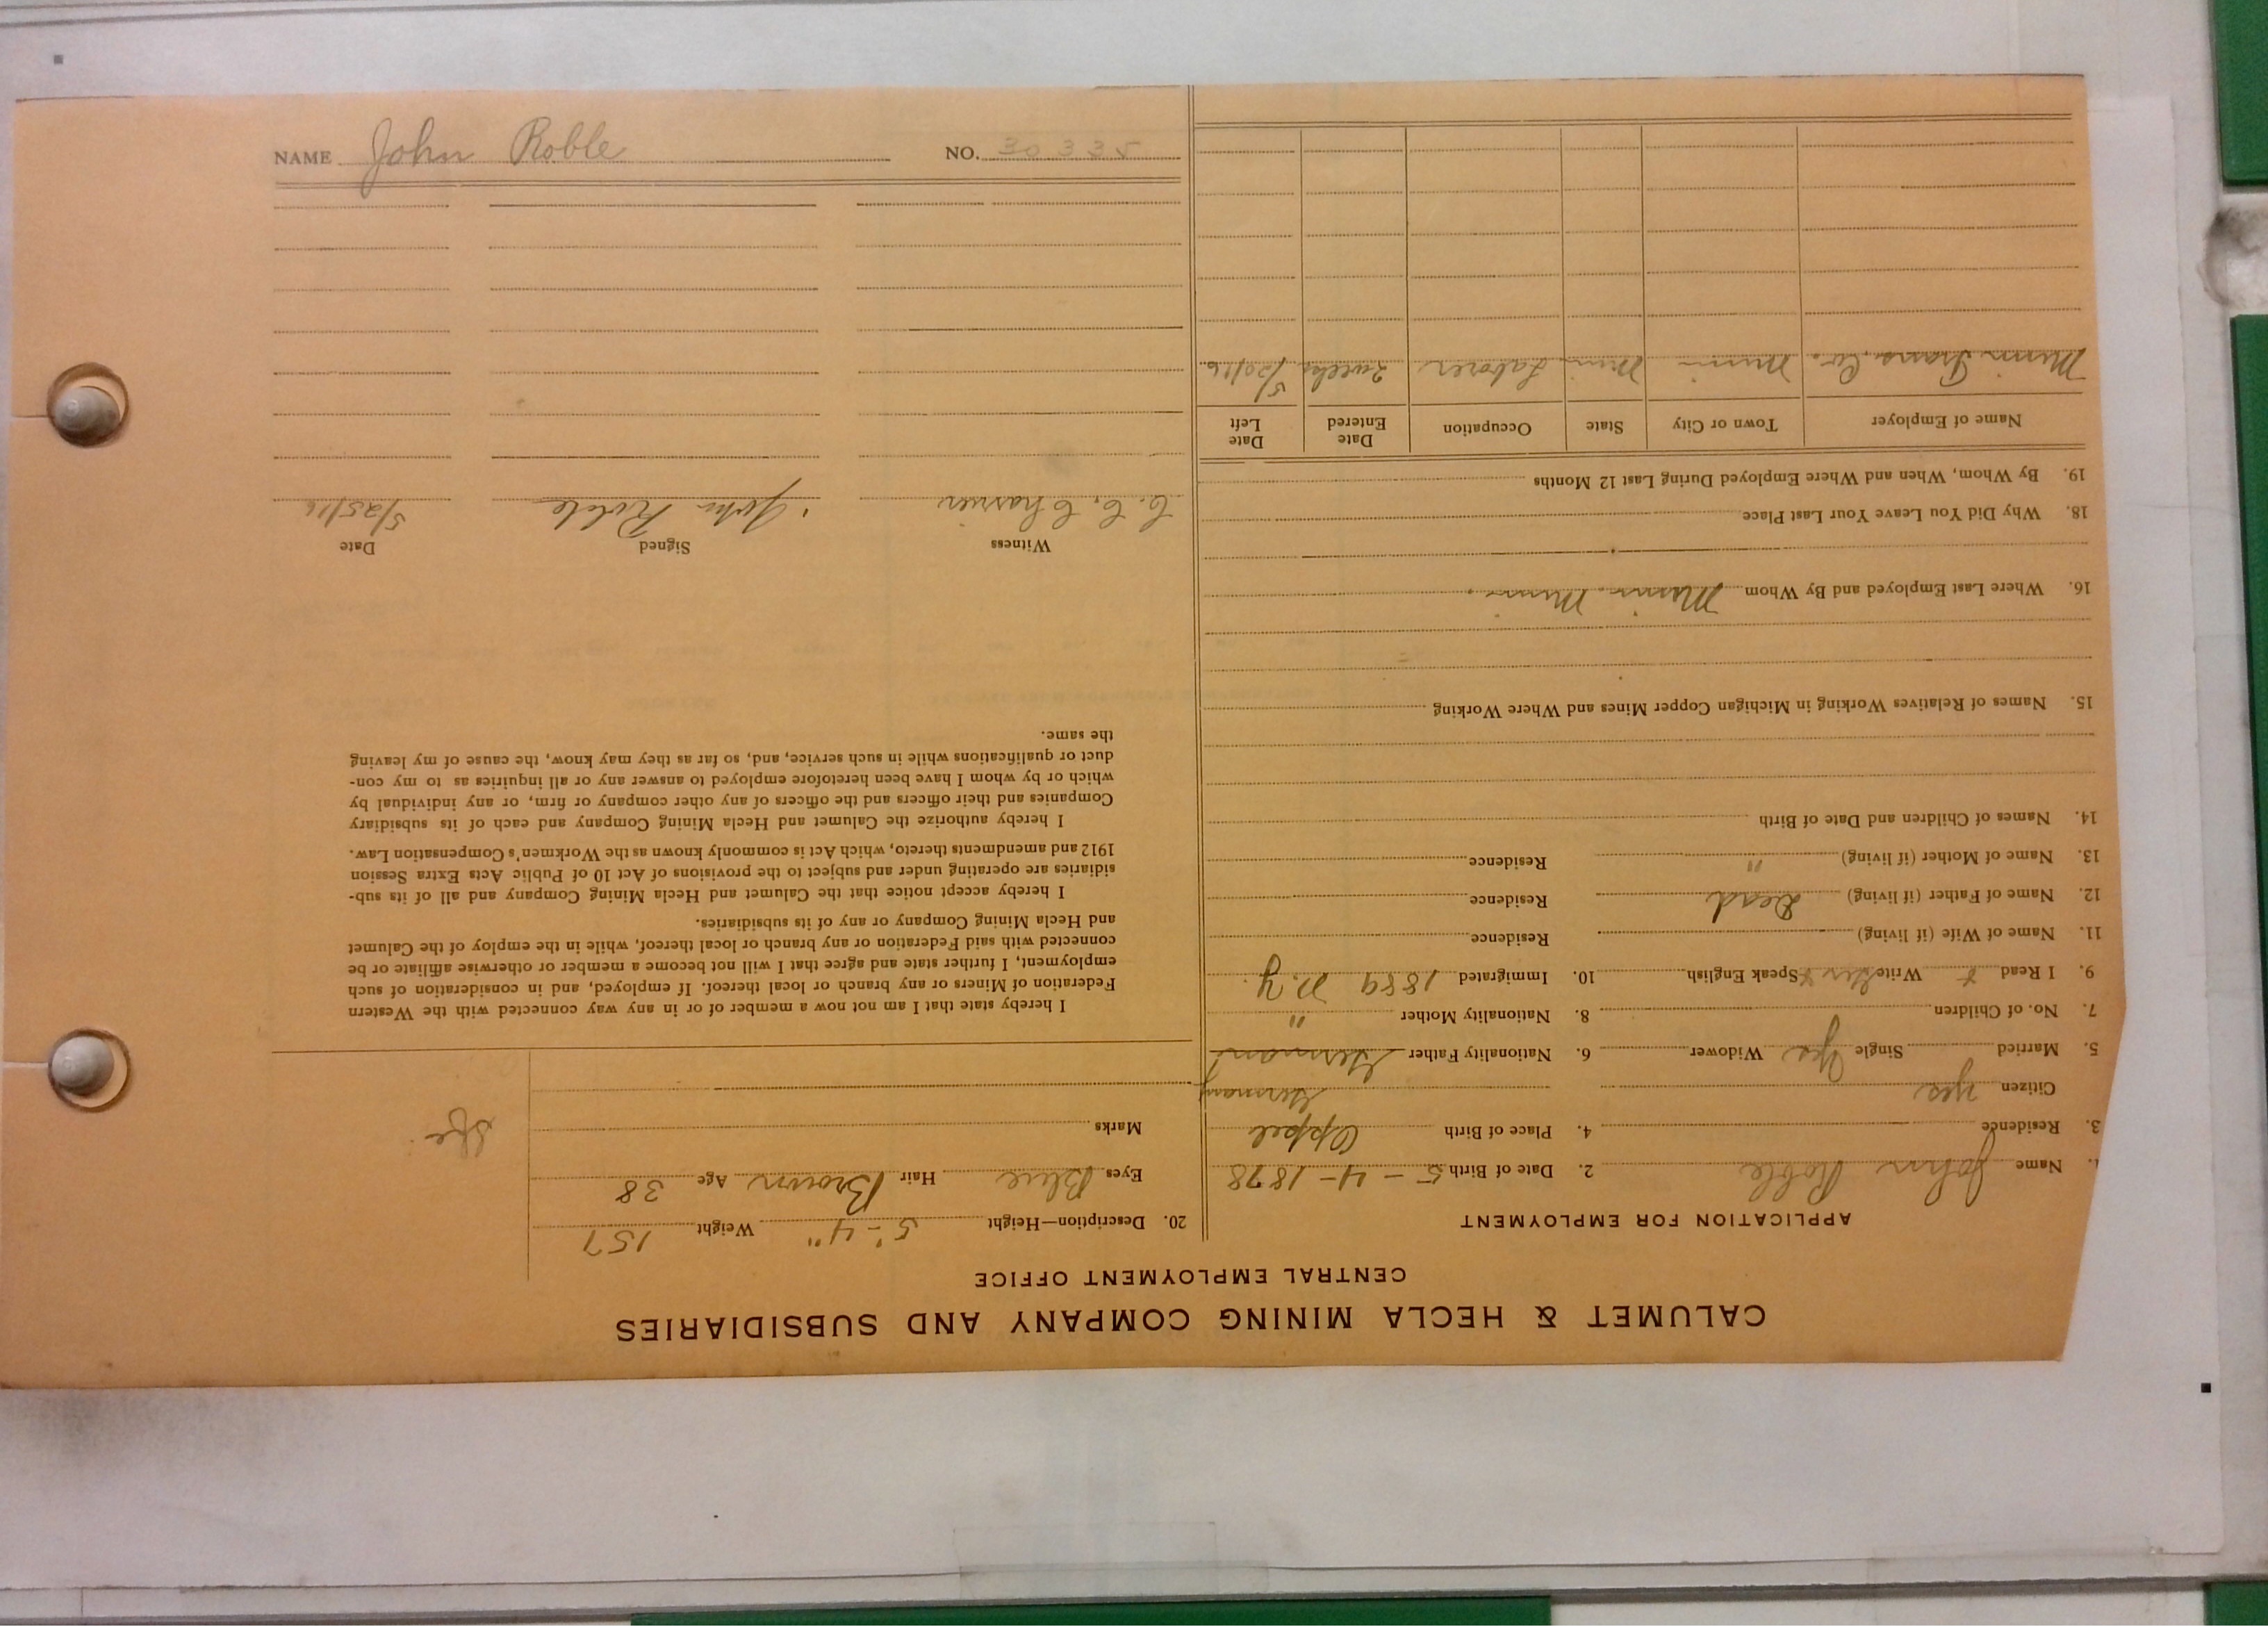 CALUMET & HECLA MINING COMPANY AND SUBSIDIARIES
CENTRAL EMPLOYMENT OFFICE
APPLICATION FOR EMPLOYMENT
1. Name John Roble 2. Date of Birth 5-4-1878
3. Residence 4. Place of Birth Oppel
Citizen yes Germany
5. Married Single Yes Widower 6. Nationality Father German
7. No. of Children 8. Nationality Mother "
9. I Read Write Speak English 10. Immigrated 1889 N.Y.
11. Name of Wife (if living) Residence
12. Name of Father (if living) Dead Residence
13. Name of Mother (if living) " Residence
14. Names of Children and Date of Birth
15. Names of Relatives Working in Michigan Copper Mines and Where Working
16. Where Last Employed and By Whom
18. Why Did You Leave Your Last Place
19. By Whom, When and Where Employed During Last 12 Months
Name of Employer Town or City State Occupation Date Entered Date Left
Co. Laborer 2 weeks 5/20/16
20. Description—Height 5'-4" Weight 157
Eyes Blue Hair Brown Age 38
Marks
I hereby state that I am not now a member of or in any way connected with the Western
Federation of Miners or any branch or local thereof. If employed, and in consideration of such
employment, I further state and agree that I will not become a member or otherwise affiliate or be
connected with said Federation or any branch or local thereof, while in the employ of the Calumet
and Hecla Mining Company or any of its subsidiaries.
I hereby accept notice that the Calumet and Hecla Mining Company and all of its sub-
sidiaries are operating under and subject to the provisions of Act 10 of Public Acts Extra Session
1912 and amendments thereto, which Act is commonly known as the Workmen's Compensation Law.
I hereby authorize the Calumet and Hecla Mining Company and each of its subsidiary
Companies and their officers and the officers of any other company or firm, or any individual by
which or by whom I have been heretofore employed to answer any or all inquiries as to my con-
duct or qualifications while in such service, and, so far as they may know, the cause of my leaving
the same.
Witness Signed Date
C. C. John Roble 5/25/16
NAME John Roble NO. 30335